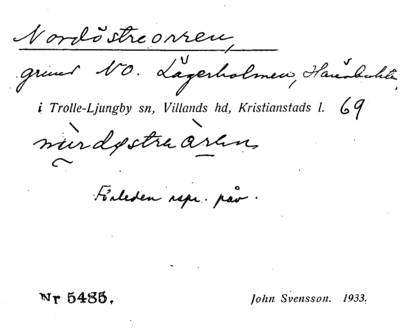 Nordöstreorren,
grund NO. Lägerholmen, Hanöbukten,
i Trolle-Ljungby sn, Villands hd, Kristianstads l. 69
Förleden repr. påv.
Nr 5485. John Svensson. 1933.